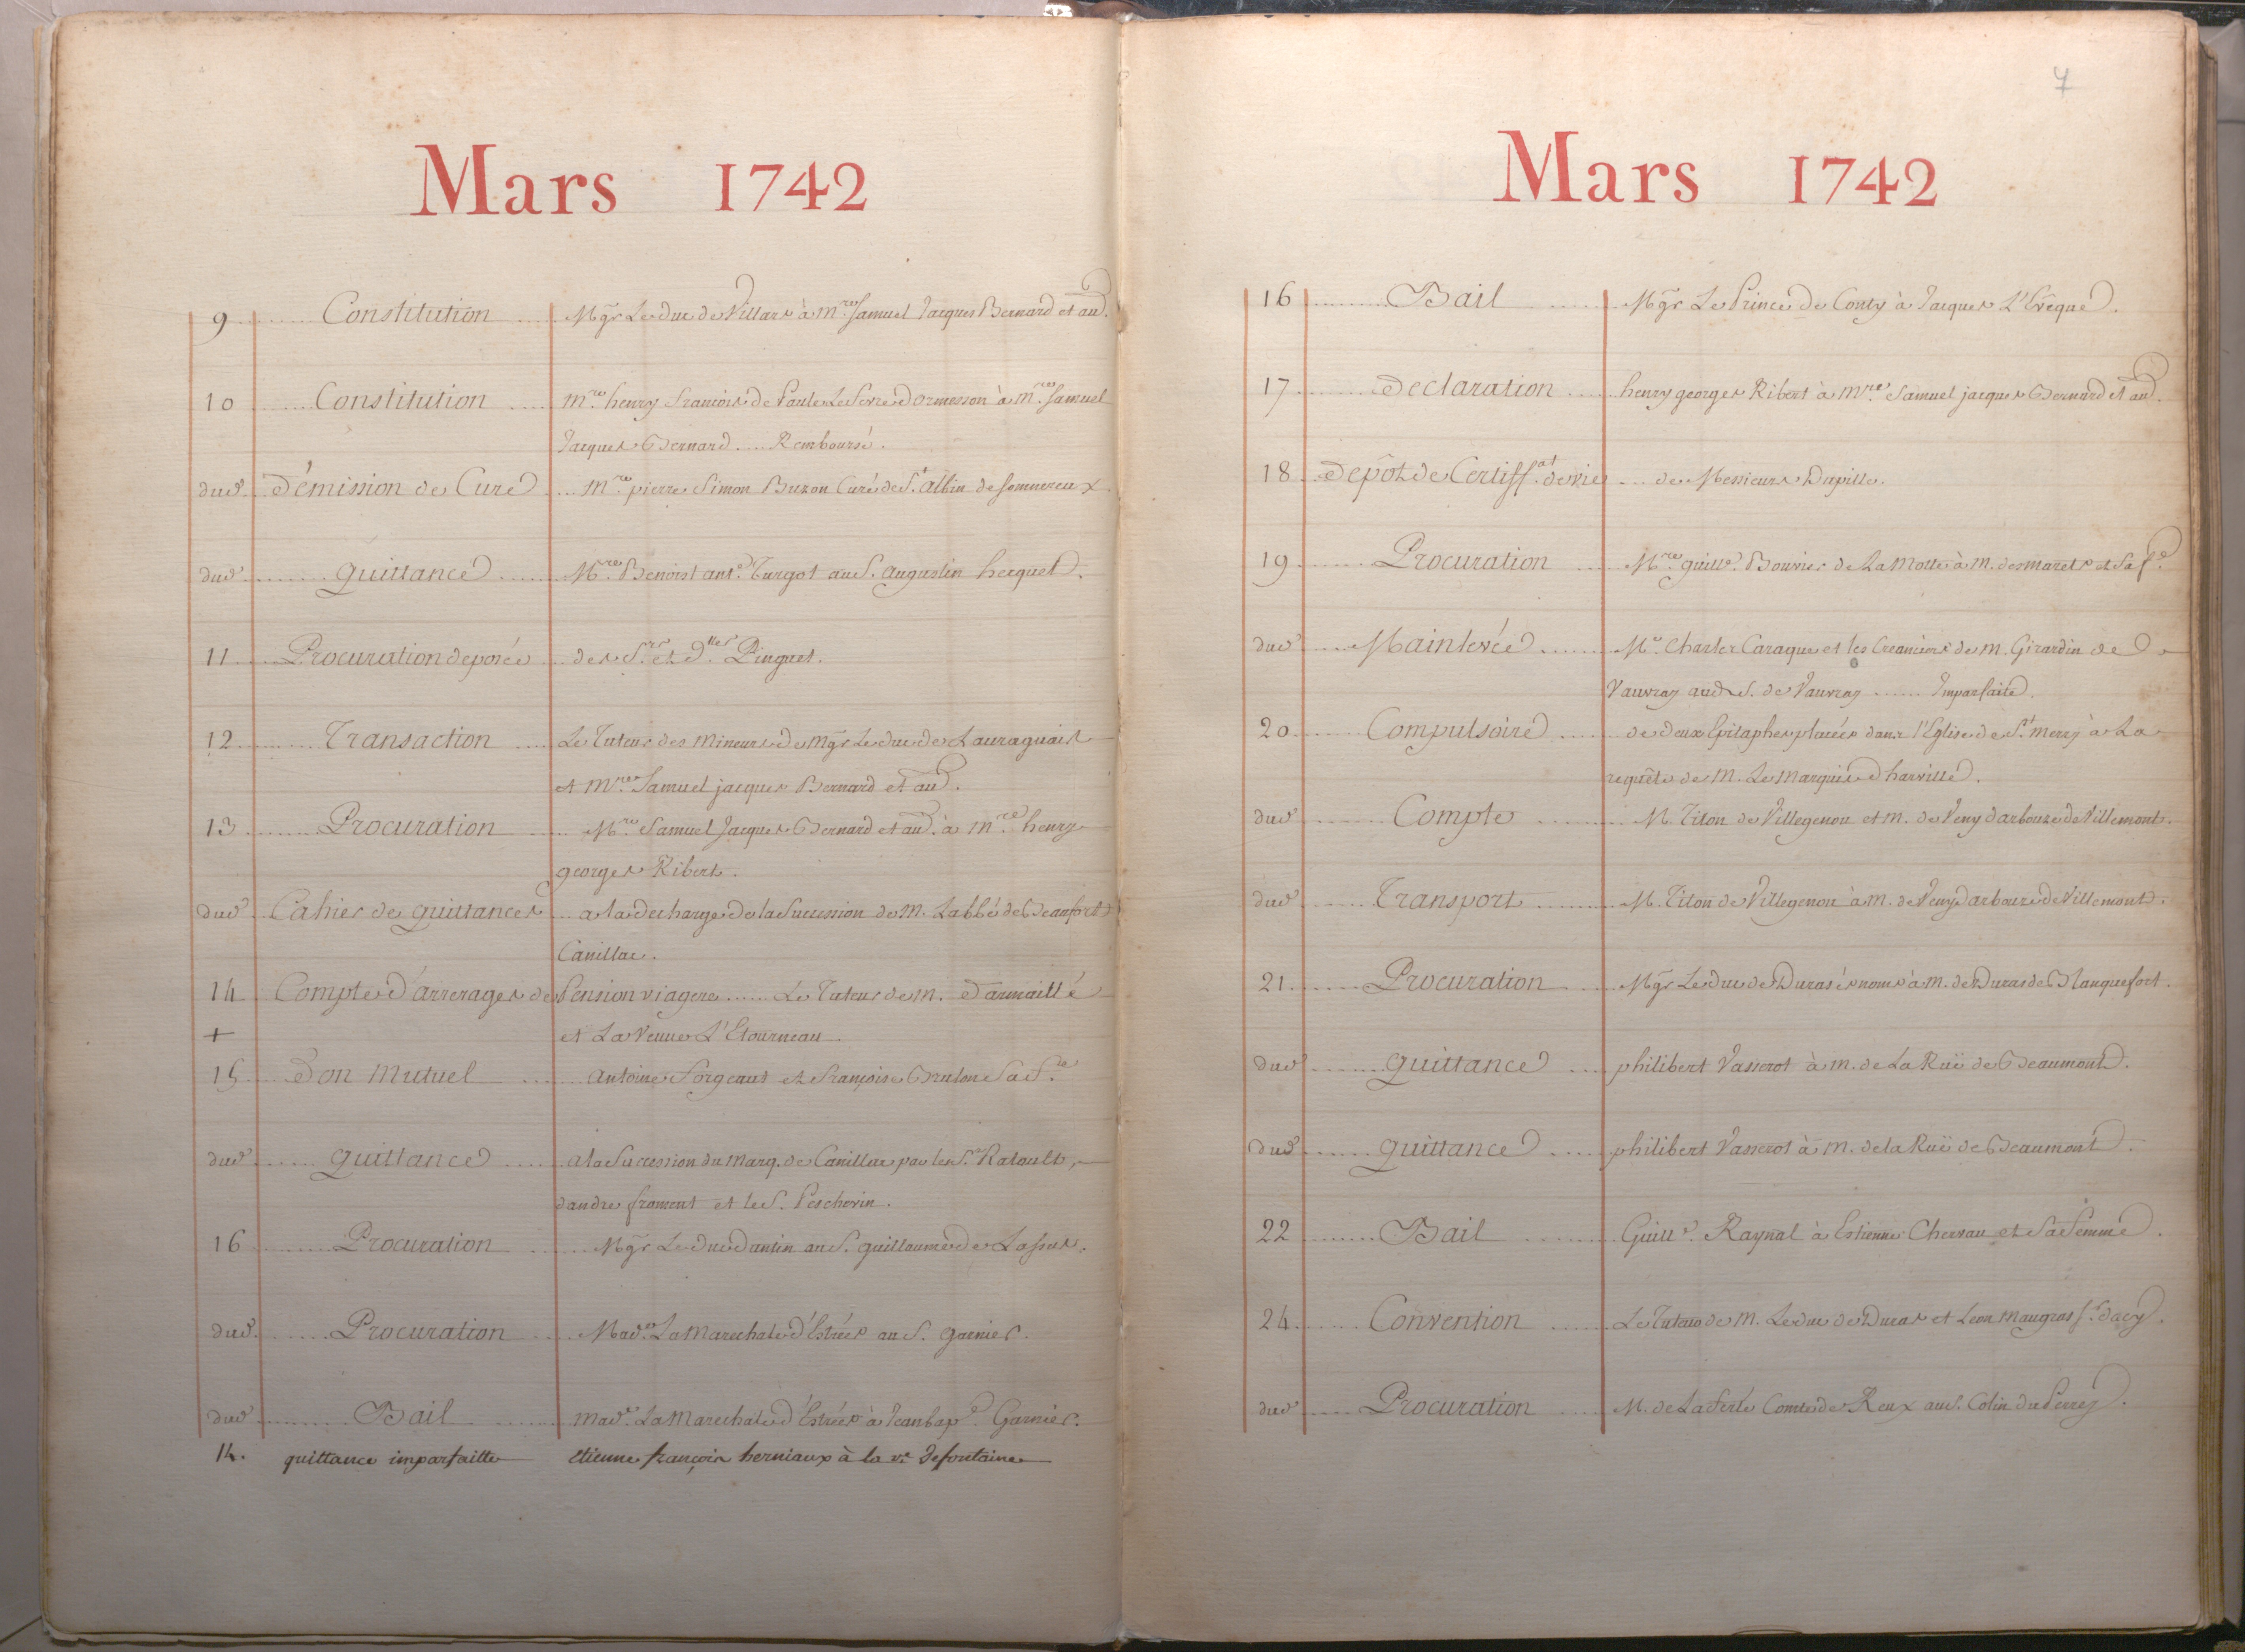 Mars 1742
9 Constitution Mgr Le Duc de Villars à mre Samuel Jacques Bernard et au.
10 Constitution mre henry françois de Paule Le Fevre dormesson à mre Samuel
Jacques Bernard .... Remboursé.
dud. Démission de Cure mre pierre Simon Buzon Curé de St. albin de Somnereux
dud. quittance Mre Benoist ant.e Turgot au S. augustin hecquet.
11 Procuration deposée des Srs. et Dlles. Pinguet.
12 Transaction Le Tuteur des mineurs de mgr Le duc de Lauraguais
et mre Samuel jacques Bernard et au.
13 Procuration Mre Samuel Jacques Bernard et au. à mre henry
georges Ribert.
dud. Cahier de quittances a la decharge de la Succession de M. Labbé de Beaufort
Canillac.
14 Compte d'arrerages de Pension viagere ...... Le Tuteur de m. d'armaillé
+ et La Veuve L'Etourneau.
15 Don Mutuel antoine Forgeaut et françoise Brulon Sa fe.
dud. quittance a la Succession du marq. de Canillac par les Srs Ratoult,
dandre froment et le S. Peschevin.
16 Procuration Mgr Le Duc Dantin au S. guillaume de Lassus.
dud. Procuration Made. La Marechale d'Estrées au S. garnier.
dud. Bail made. La Marechale d'Estrées à Jean bape. Garnier.
14. quittance imparfaitte etienne françois herniaux à la ve. defontaine
7
Mars 1742
16 Bail Mgr Le Prince de Conty à Jacques L'Evêque.
17 Declaration henry georges Ribert à mre Samuel jacques Bernard et au.
18 Depôt de Certiff.at de vie de Messieurs Dapille.
19 Procuration Mre guille. Bouvier de La Motte à M. desmarets et Sa fe.
dud. Mainlevée Me. Charles Caraque et les Creanciers de m. Girardin de
Vauvray aud. S. de Vauvray ...... Imparfaite.
20 Compulsoire de deux Epitaphes placées dans l'Eglise de St. mery à La
requête de M. Le marquis d'harville.
dud. Compte M. Titon de Villegenou et m. de Veny darbouze de Villemont.
dud. Transport M. Titon de Villegenou à m. de Veny darbouze de Villemont.
21 Procuration Mgr Le duc de Duras és noms à m. de Duras de Blanquefort.
dud. quittance philibert Vasserot à m. de La Ruë de Beaumont.
dud. quittance philibert Vasserot à m. de la Ruë de Beaumont.
22 Bail Guille. Raynal à Estienne Chervau et Sa femme.
24 Convention Le Tuteur de M. Le duc de Duras et Leon maugras Sr. dacy.
dud. Procuration M. de La Ferté Comte de Reux au S. Colin du Perrey.